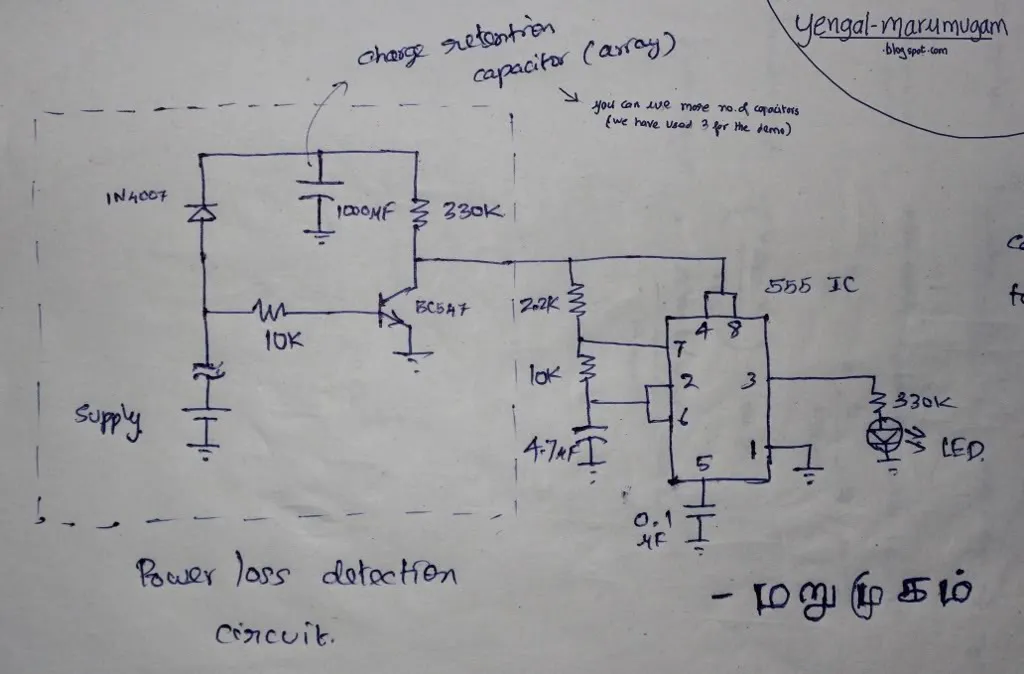 Yengal-marumugam
.blogspot.com
charge retention
capacitor (array)
you can use more no. of capacitors
(we have used 3 for the demo)
1N4007
1000µF
330K
555 IC
BC547
2.2K
4 8
10K
7
10K
2
3
330K
Supply
6
4.7µF
1
LED.
5
0.1
µF
Power loss detection
circuit.
- மறுமுகம்